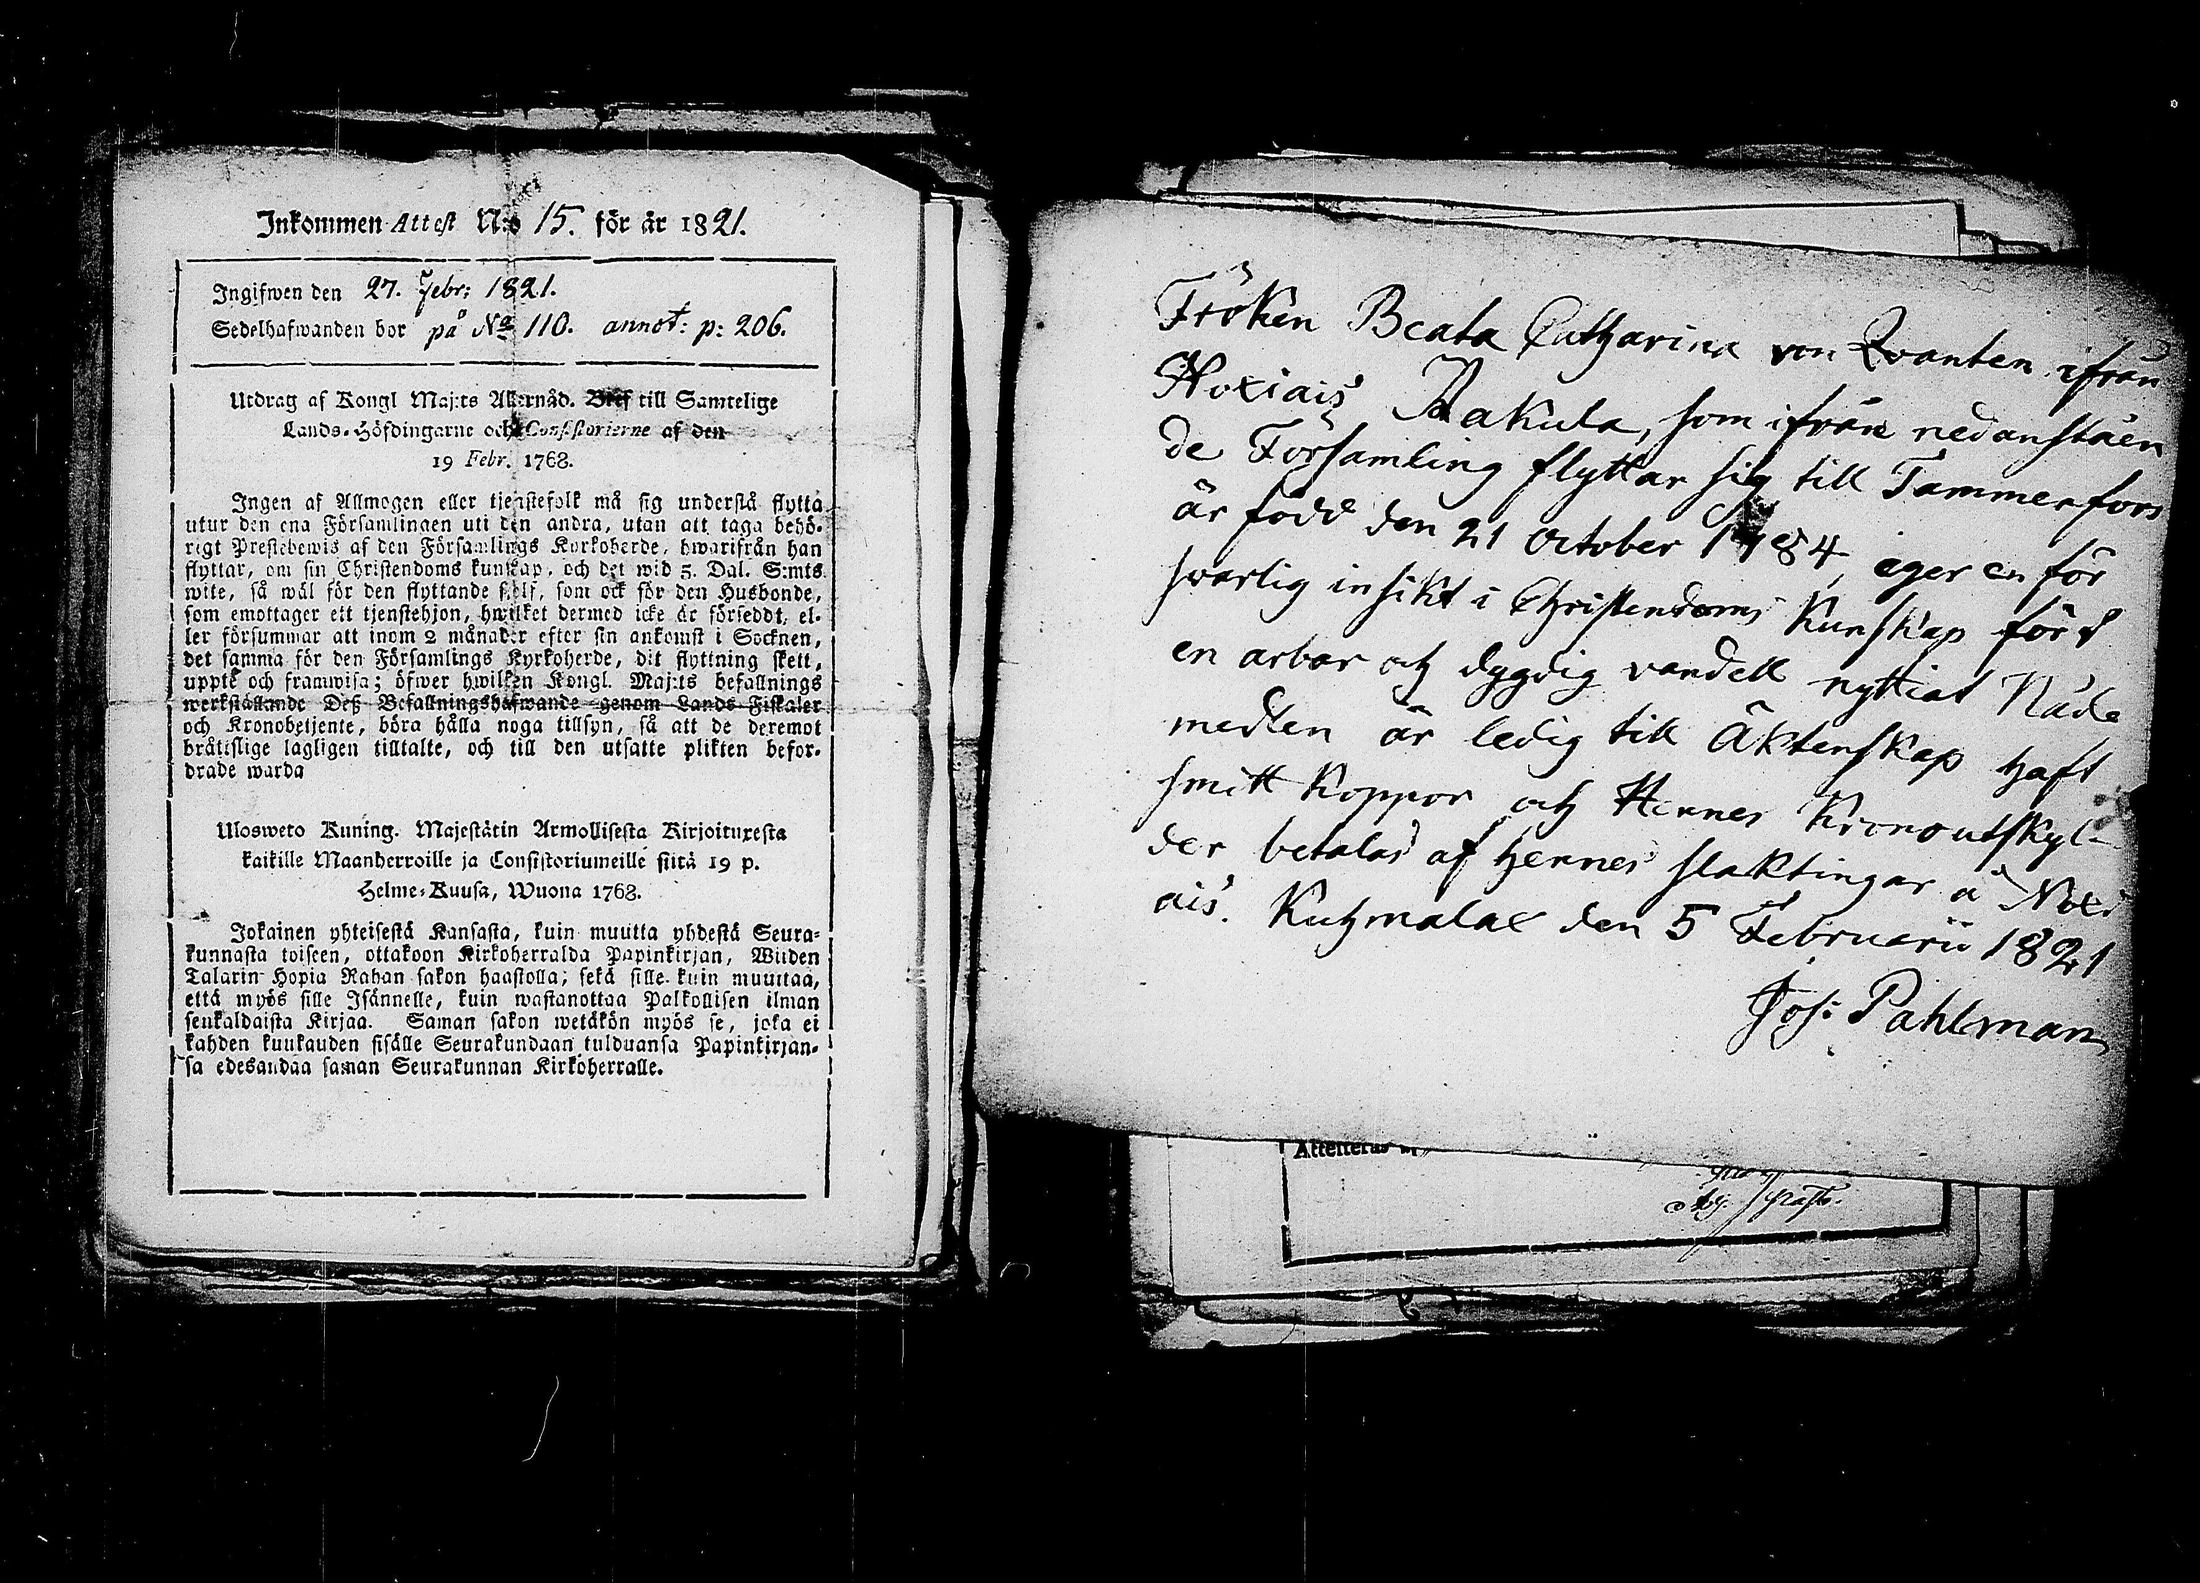 Inkommen Attest N:o 15. för år 1821.
Ingifwen den 27. Febr: 1821.
Sedelhafwanden bor på No 110. annot: p: 206.
Utdrag af Kongl Maj:ts Allernåd. Bref till Samtelige
Lands-Höfdingarne och Consistorierne af den
19 Febr. 1768.
Ingen af Allmogen eller tjenstefolk må sig understå flytta
utur den ena Församlingen uti den andra, utan att taga behö-
rigt Prestebewis af den Församlings Kyrkoherde, hwarifrån han
flyttar, om sin Christendoms kunskap, och det wid 5. Dal. S:mts
wite, så wäl för den flyttande sjelf, som ock för den Husbonde,
som emottager ett tjenstehjon, hwilket dermed icke är förseddt, el-
ler försummar att inom 2 månader efter sin ankomst i Socknen,
det samma för den Församlings Kyrkoherde, dit flyttning skett,
uppte och framwisa; öfwer hwilken Kongl. Maj:ts befallnings
werkställande Deß Befallningshafwande genom Lands Fiskaler
och Kronobetjente, böra hålla noga tillsyn, så att de deremot
bråttslige lagligen tilltalte, och till den utsatte plikten befor-
drade warda
Ulosweto Kuning. Majestätin Armollisesta Kirjoituxesta
kaikille Maanherroille ja Consistoriumeille siitä 19 p.
Helme-Kuusa, Wuona 1768.
Jokainen yhteisestä Kansasta, kuin muutta yhdestä Seura-
kunnasta toiseen, ottakoon Kirkoherralda Papinkirjan, Wiiden
Talarin Hopia Rahan sakon haastolla; sekä sille kuin muuttaa,
että myös sille Isännelle, kuin wastanottaa Palkollisen ilman
senkaldaista Kirjaa. Saman sakon wetäkön myös se, joka ei
kahden kuukauden sisälle Seurakundaan tulduansa Papinkirjan-
sa edesandaa saman Seurakunnan Kirkoherralle.
Fröken Beata Catharina von Qvanten ifrån
Noxiais Nakula, som ifrån nedanståen
de Församling flyttar sig till Tammerfors
är född den 21 October 1784, eger en för
svarlig insikt i Christendoms Kunskap förd
en arbar och dygdig vandell nyttiat Nåde
medlen är ledig till Äktenskap haft
smitt Koppor och Hennes Kronoutskyl-
der betalas af hennes slaktingar a Noxi
ais. Kuhmalax den 5 Februarii 1821
Jos: Pahlman
Attesteras
Past.